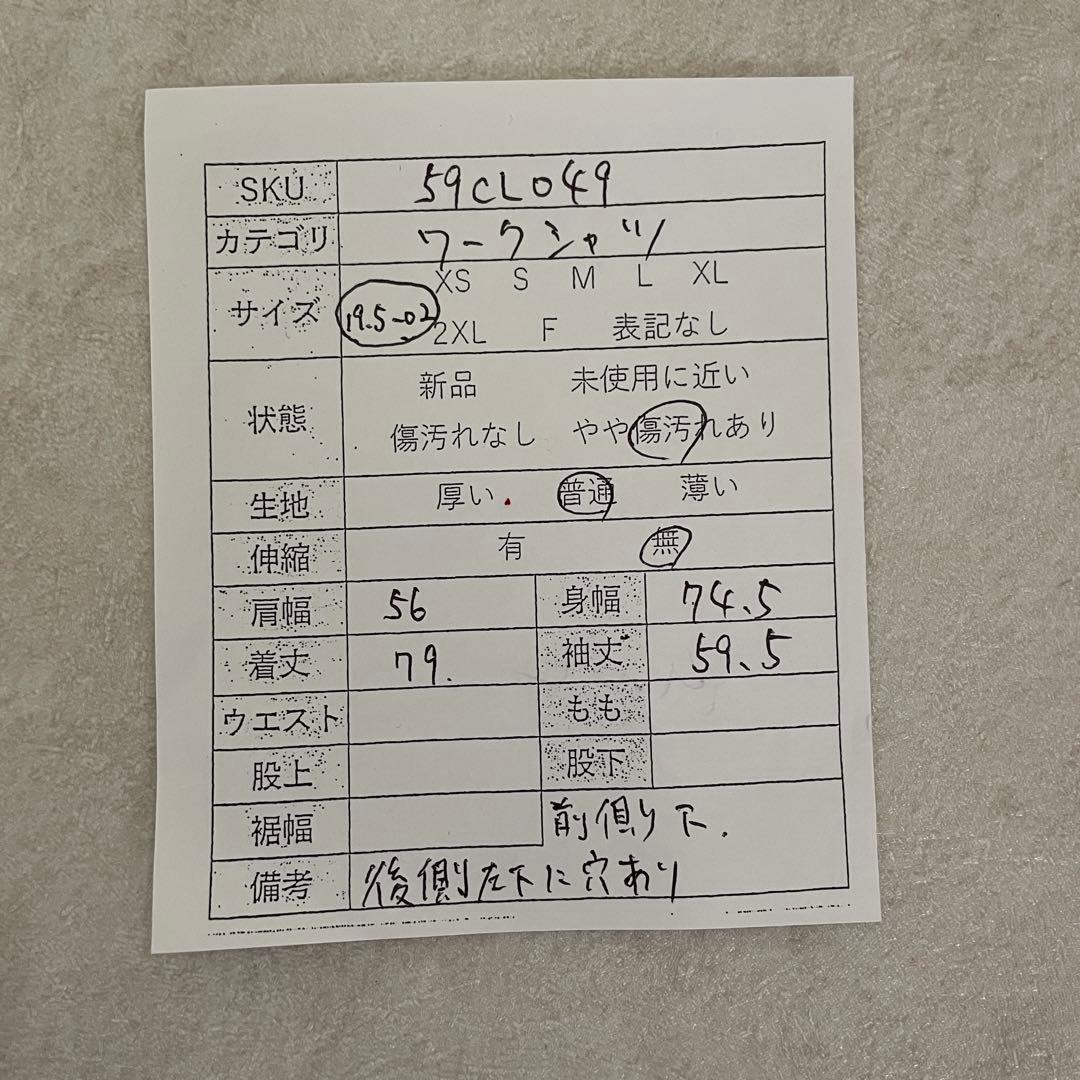 SKU 59CL049
カテゴリ ワークシャツ
XS S M L XL
サイズ 19.5-02 2XL F 表記なし
新品 未使用に近い
状態 傷汚れなし やや傷汚れあり
生地 厚い 普通 薄い
伸縮 有 無
肩幅 56 身幅 74.5
着丈 79. 袖丈 59.5
ウエスト もも
股上 股下
裾幅 前側り下.
備考 後側左下に穴あり